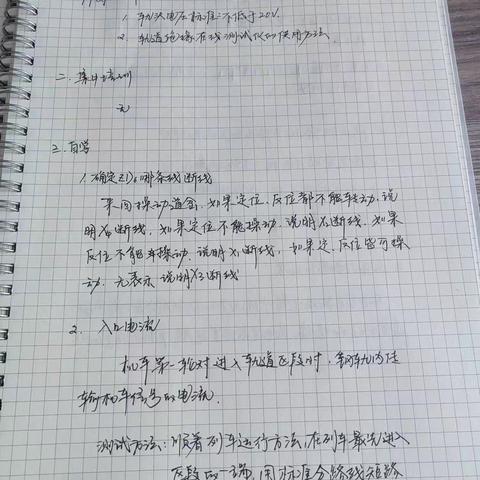 1. 轨入电压标准:不低于20V.
2. 轨道绝缘在线测试仪的使用方法.
二. 集中培训
无
三. 自学
1. 确定ZD6哪条线断线
来回操动道岔, 如果定位、反位都不能转动, 说
明X4断线, 如果定位不能操动, 说明X2断线, 如果
反位不能操动, 说明X1断线, 如果定、反位皆可操
动, 无表示说明X3断线
2. 入口电流
机车第一轮对进入轨道区段时, 钢轨内传
输机车信号的电流.
测试方法: 顺着列车运行方法, 在列车最先进入
区段的一端, 用标准分路线短路